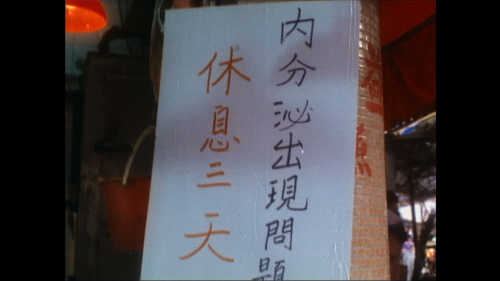 內分泌出現問題
休息三天